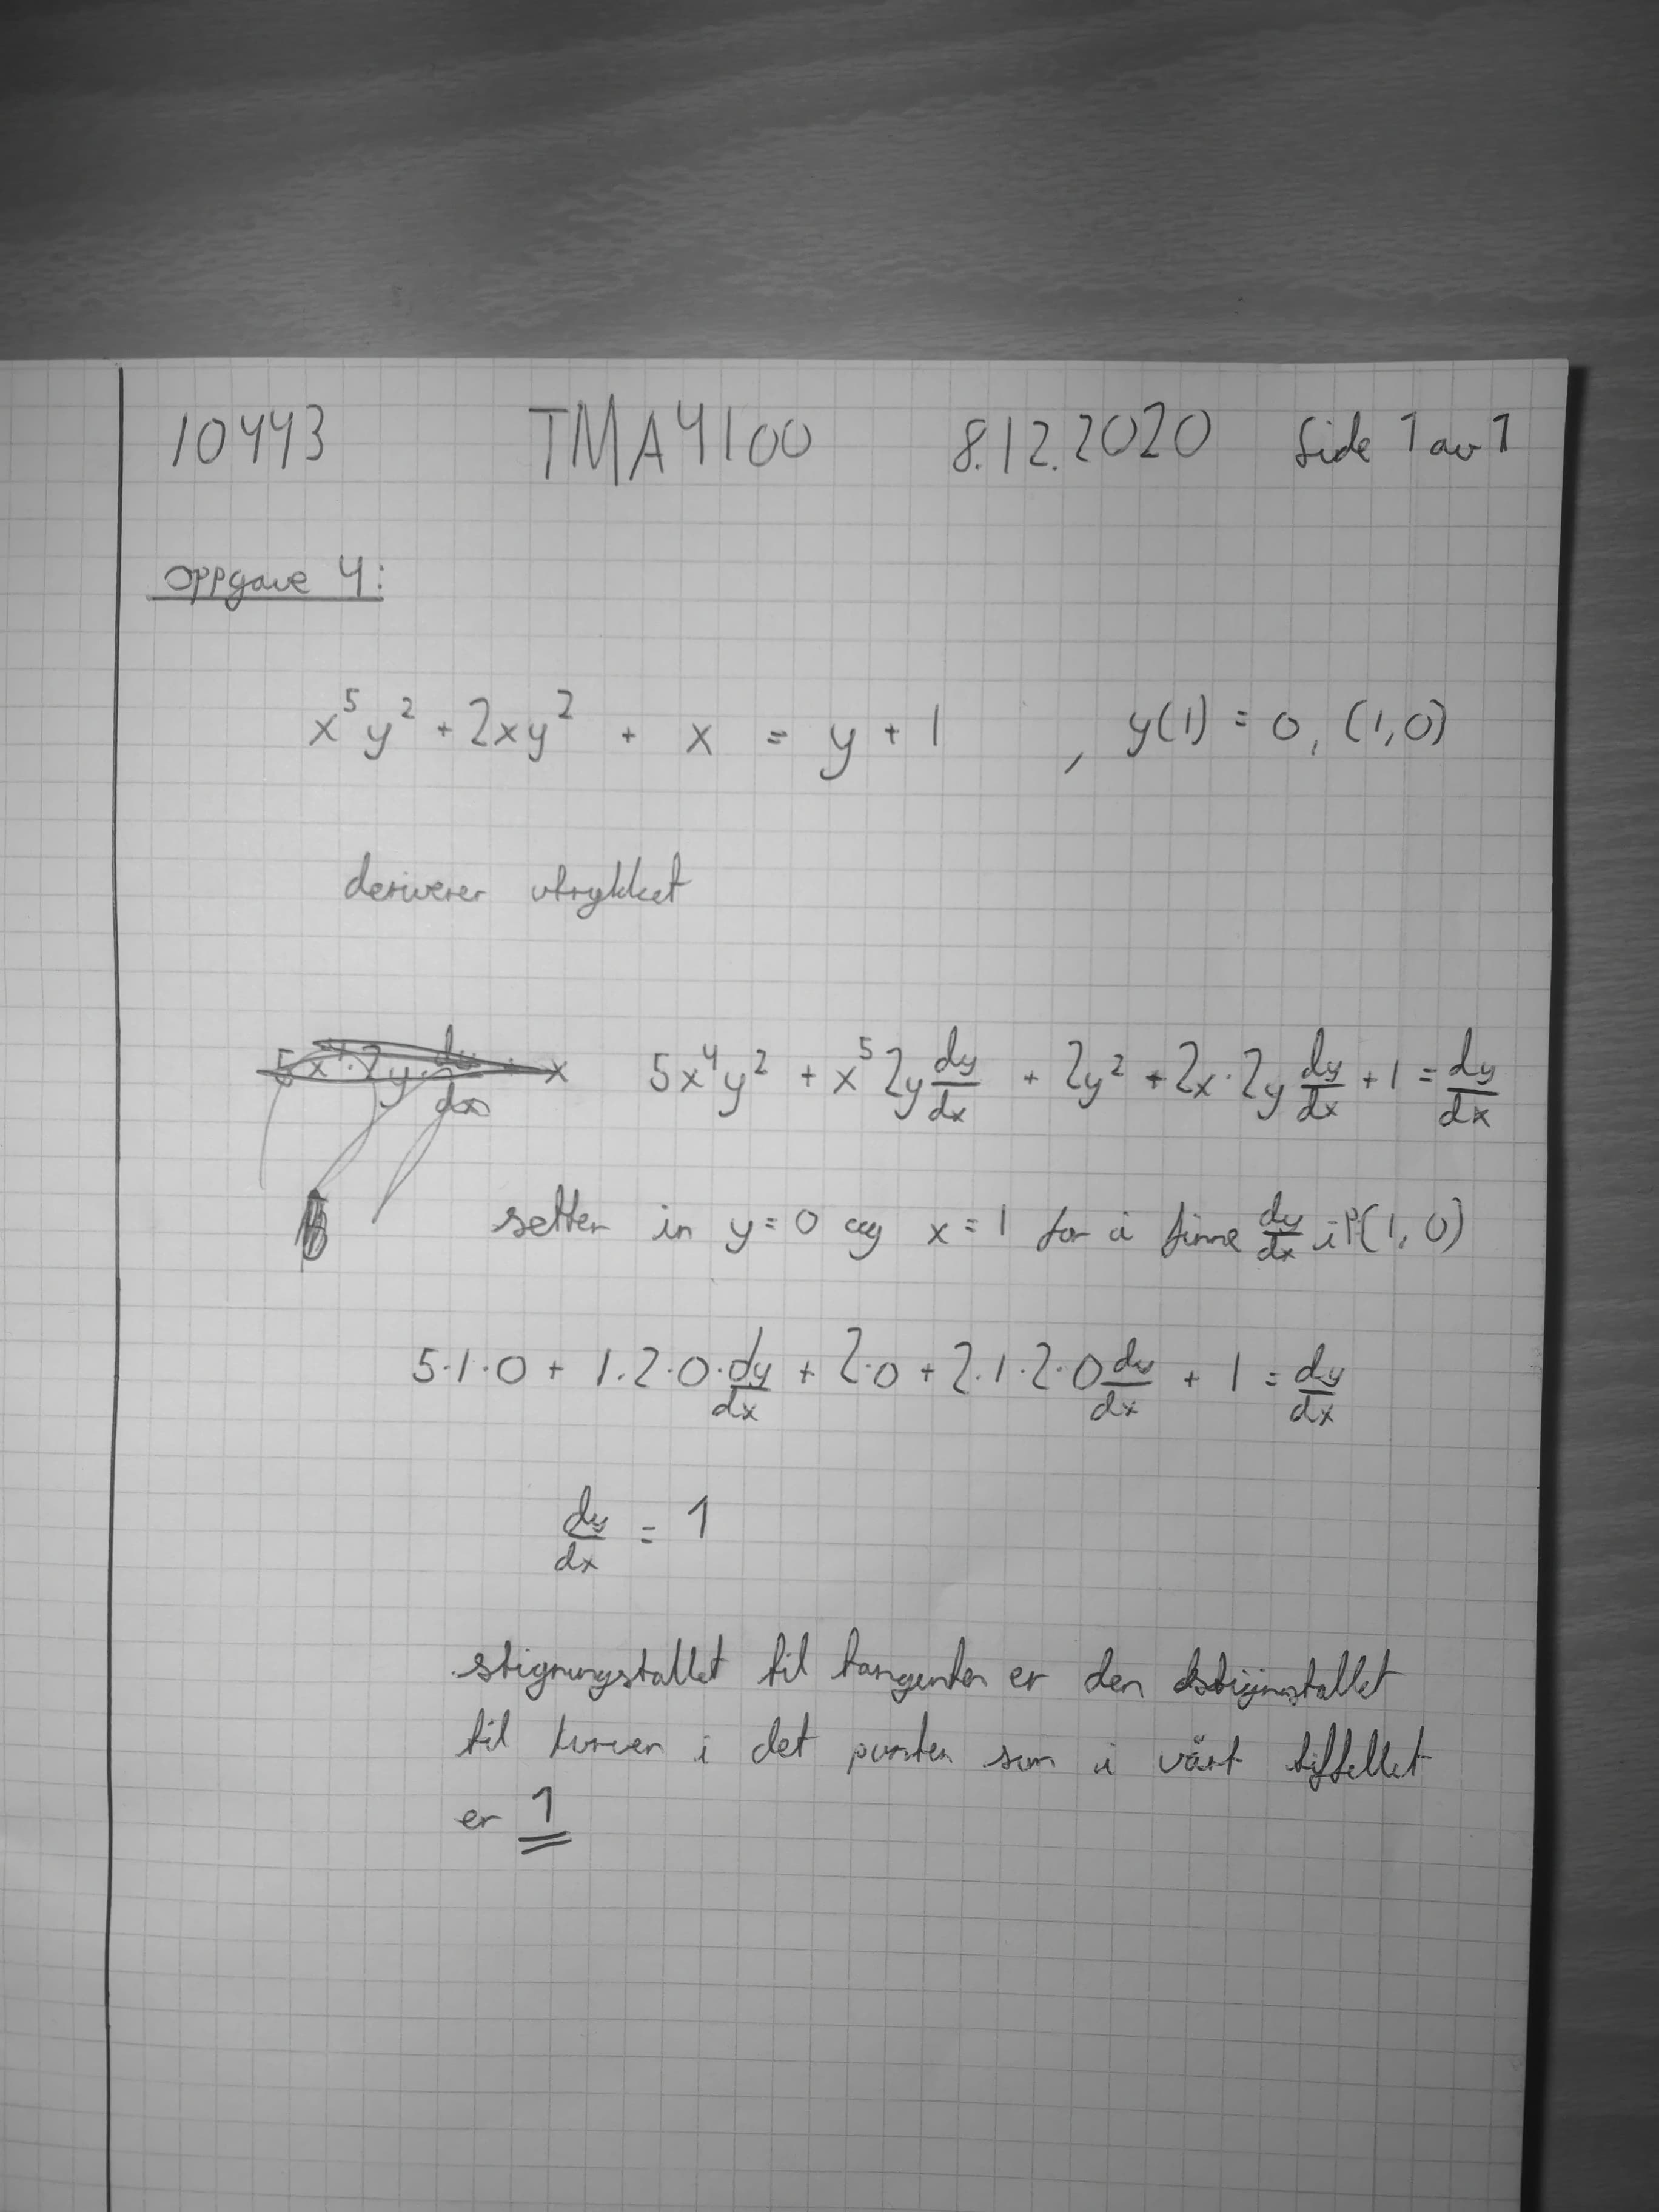 10443 TMA4100 8.12.2020 Side 1 av 1
Oppgave 4:
x⁵y² + 2xy² + x = y + 1 , y(1) = 0, (1,0)
deriverer utrykket
5x⁴y² + x⁵2y dy/dx + 2y² + 2x·2y dy/dx + 1 = dy/dx
setter in y=0 og x=1 for å finne dy/dx i P(1, 0)
5·1·0 + 1·2·0·dy/dx + 2·0 + 2·1·2·0 dy/dx + 1 = dy/dx
dy/dx = 1
stigningstallet til tangenten er den
til kurven i det punkten som i vårt tilfellet
er 1